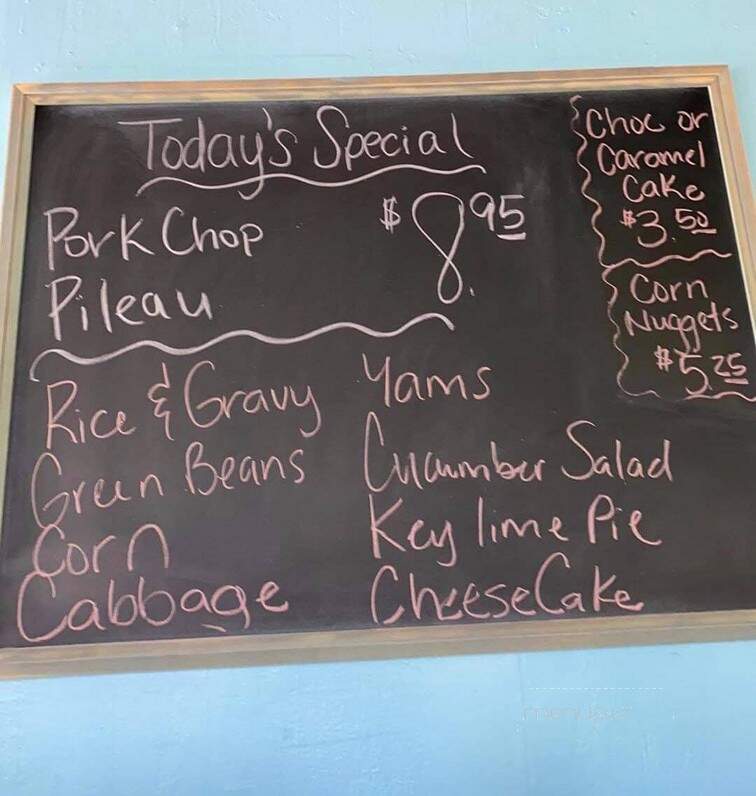 Today's Special
Pork Chop
Pileau
$8.95
Rice & Gravy
Green Beans
Corn
Cabbage
Yams
Cucumber Salad
Key lime Pie
CheeseCake
Choc or
Caramel
Cake
$3.50
Corn
Nuggets
$5.25